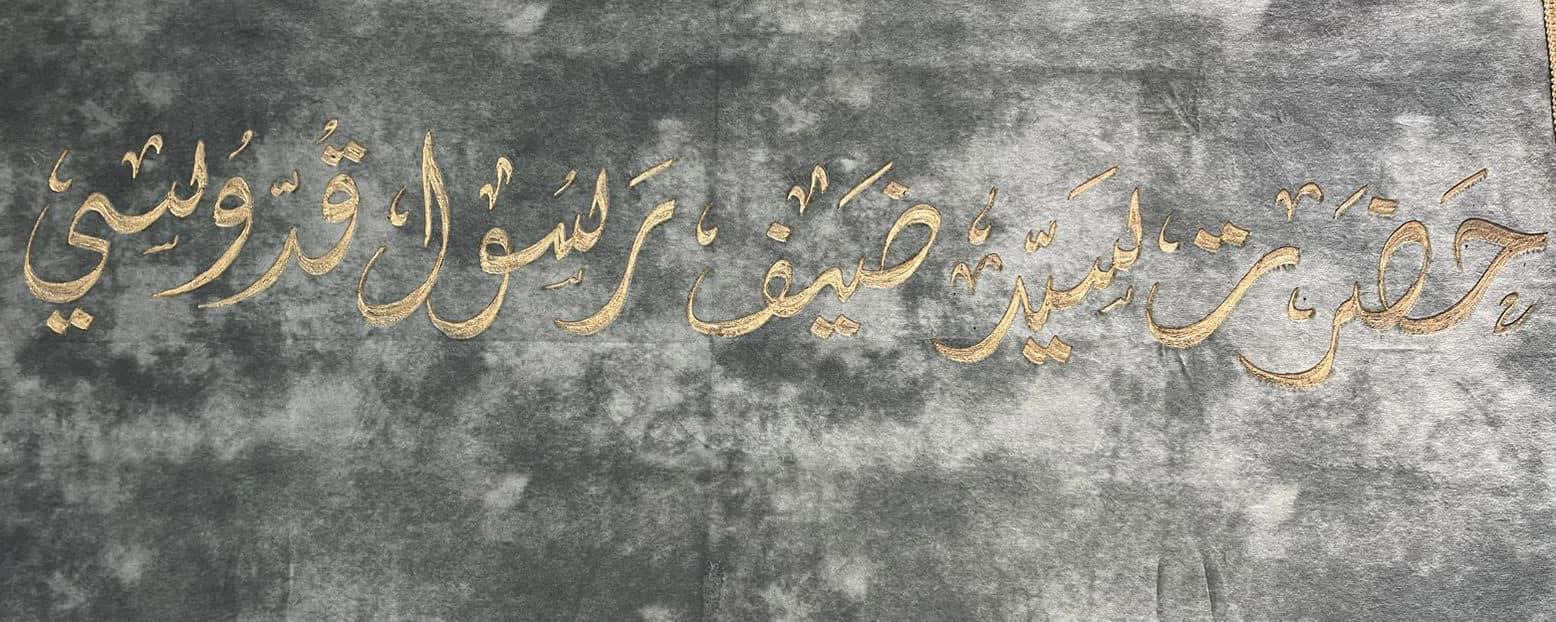 حَضَرت سَيّد ضَيف رَسُول قُدّوُسي